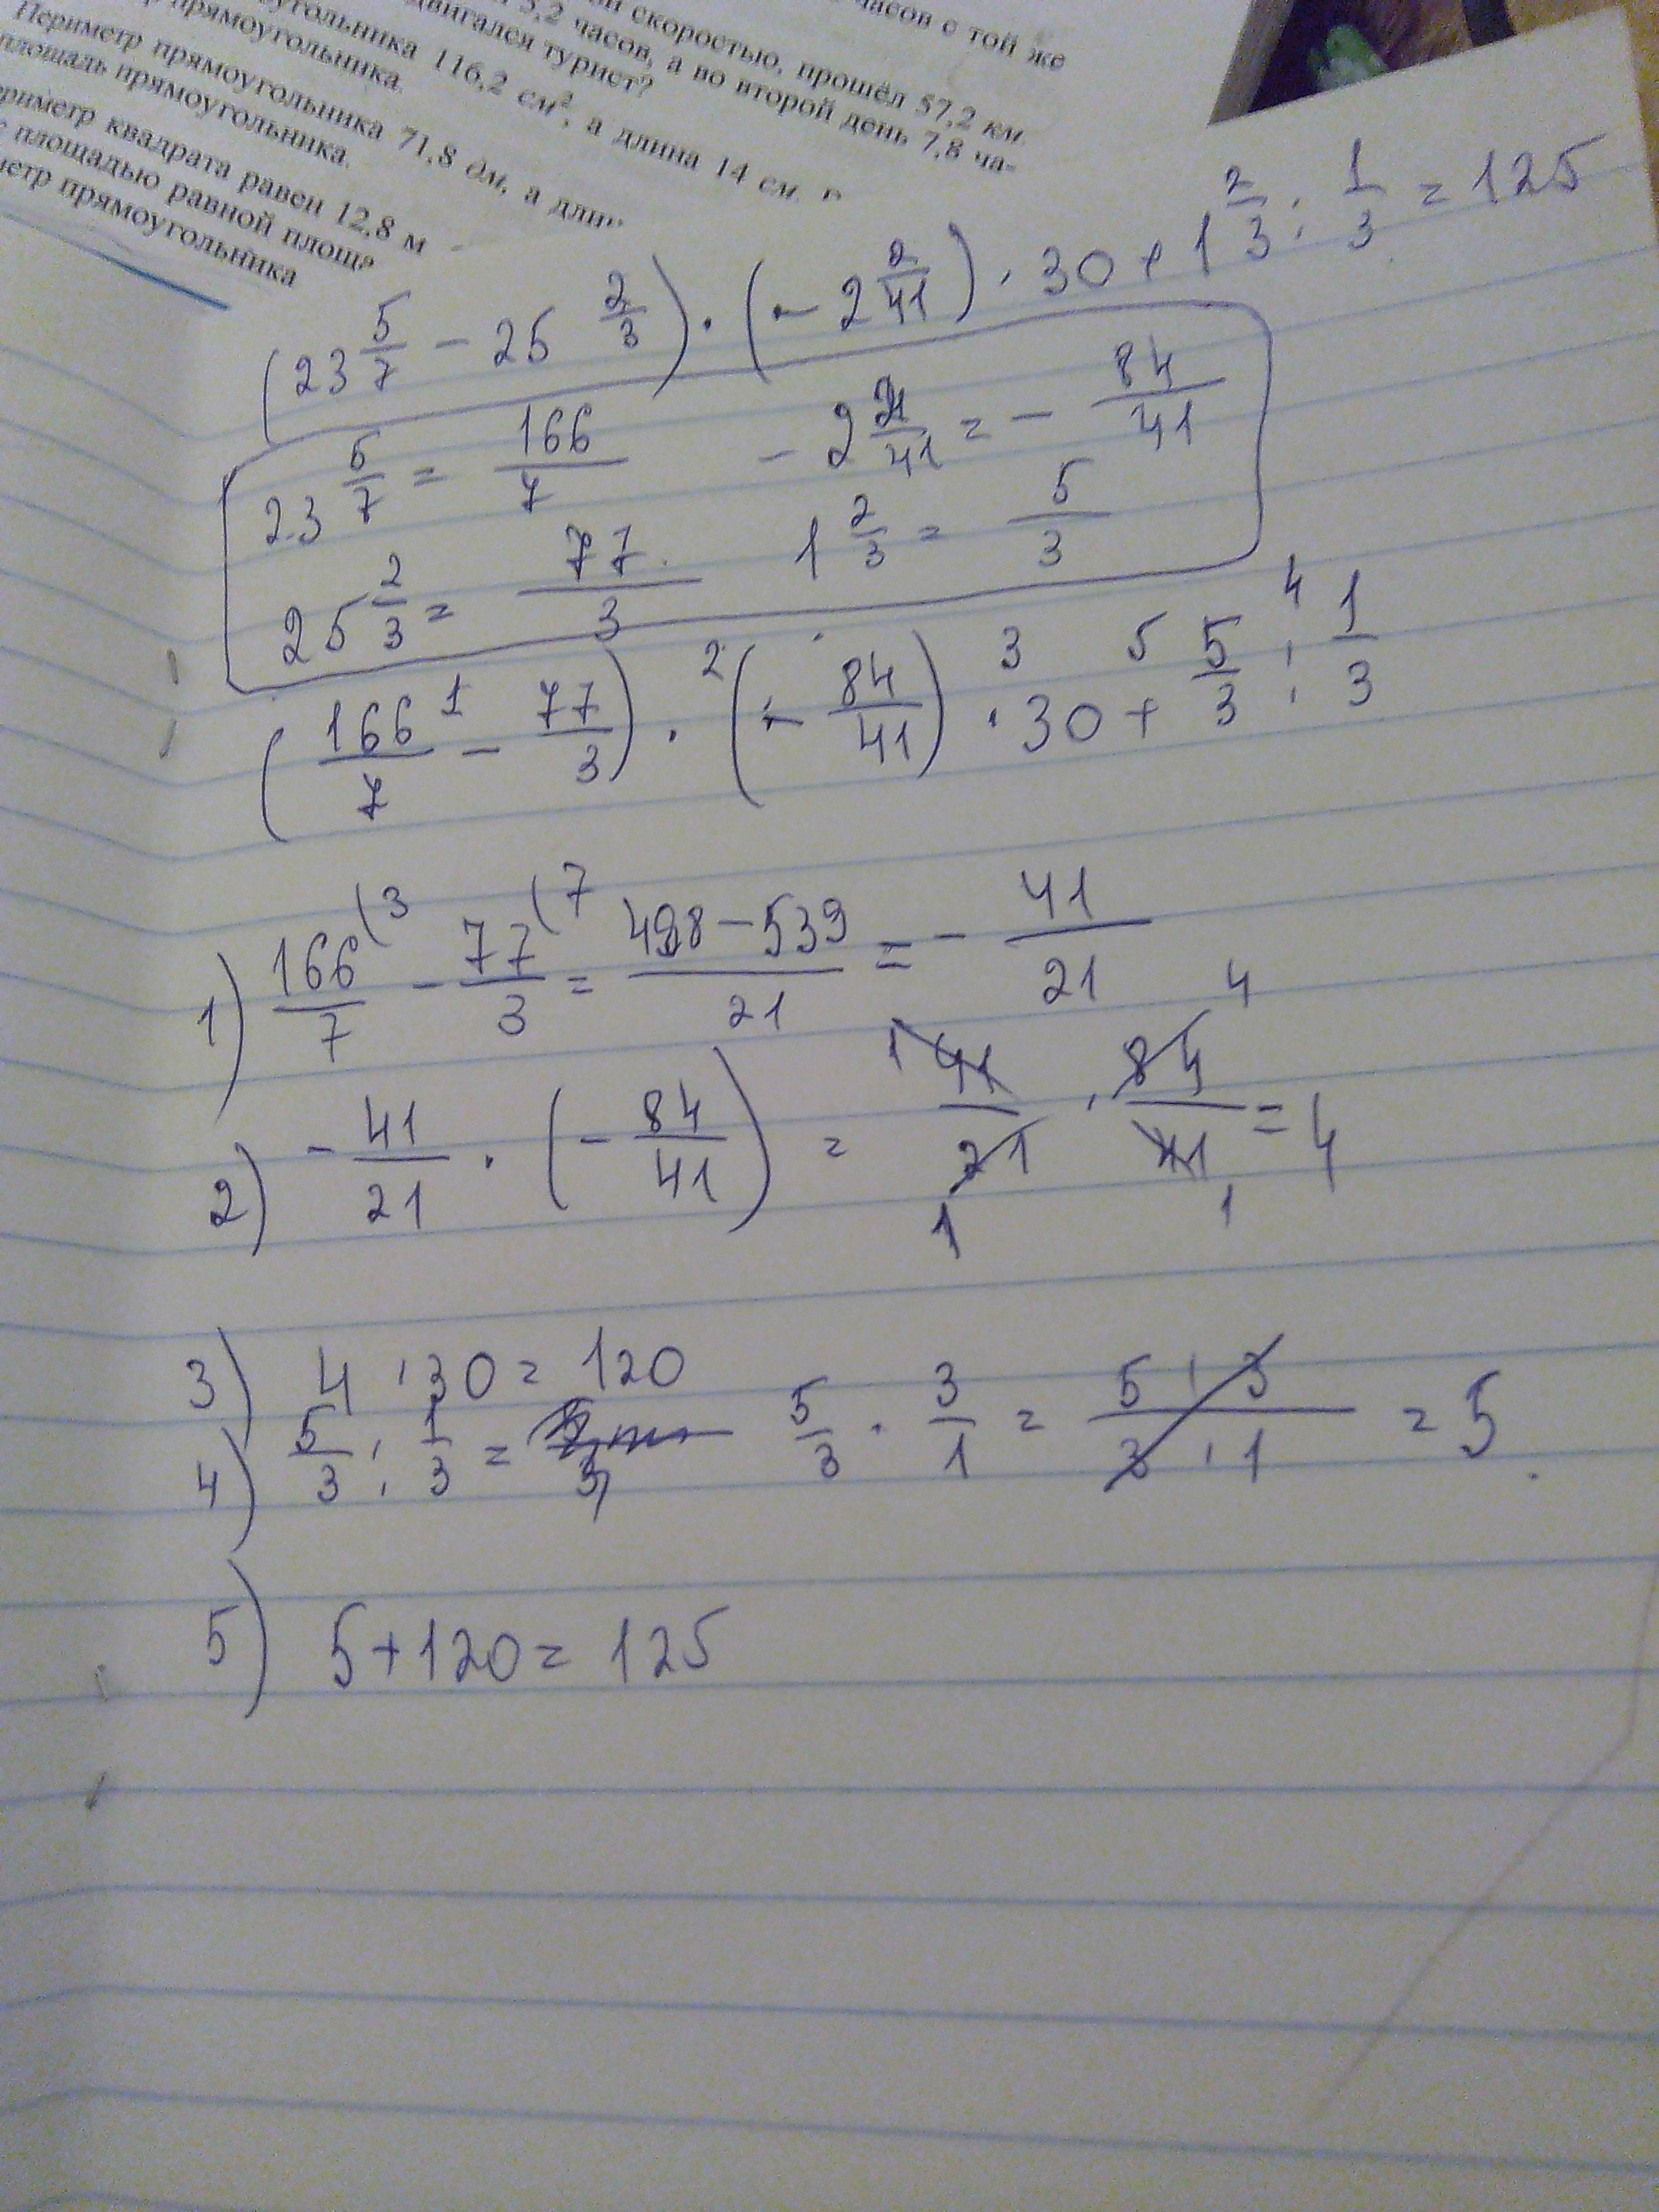 часов с той же
скоростью, прошёл 57,2 км.
5,2 часов, а во второй день 7,8 ча-
двигался турист?
угольника 116,2 см², а длина 14 см.
прямоугольника.
Периметр прямоугольника 71,8 дм, а
площадь прямоугольника.
периметр квадрата равен 12,8 м
с площадью равной
метр прямоугольника
(23 5/7 - 25 2/3) · (- 2 2/41) · 30 + 1 2/3 : 1/3 = 125
23 5/7 = 166/7   - 2 2/41 = - 84/41
25 2/3 = 77/3   1 2/3 = 5/3
(166/7 1 - 77/3) · 2 (- 84/41) 3 · 30 + 5 5/3 4 : 1/3
1) 166/7 (3 - 77/3 (7 = 498-539/21 = - 41/21
2) - 41/21 · (- 84/41) = 1 41/21 1 · 84/41 4 1 = 4
3) 4 · 30 = 120
4) 5/3 : 1/3 = 5/3 · 3/1 = 5 · 3/3 · 1 = 5
5) 5+120= 125